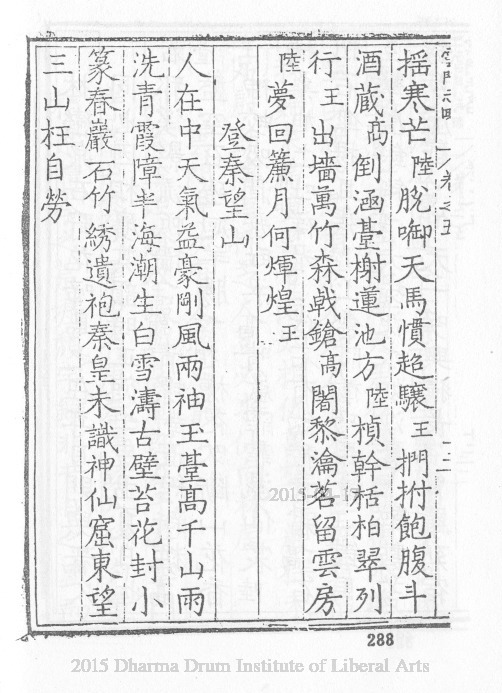 雲門志略 卷之五
搖寒芒陸脫啣天馬慣超驤王捫拊飽腹斗
酒蔵高倒涵臺榭蓮池方陸楨幹栝柏翠列
行王出墻萬竹森戟鎗高闍黎瀹茗留雲房
陸夢回簾月何煇煌王
登秦望山
人在中天氣益豪剛風兩袖玉臺高千山雨
洗青霞障半海潮生白雪濤古壁苔花封小
篆春巖石竹綉遺袍秦皇未識神仙窟東望
三山枉自勞
288
2015-04-13
2015 Dharma Drum Institute of Liberal Arts